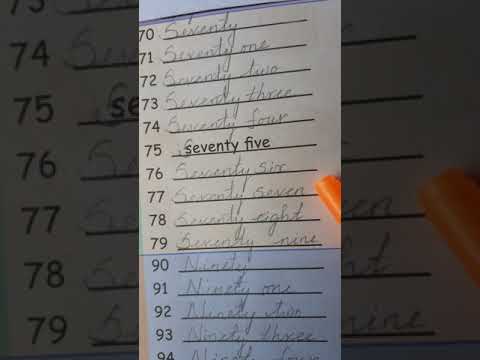 70 Seventy
71 Seventy one
72 Seventy two
73 Seventy three
74 Seventy four
75 seventy five
76 Seventy six
77 Seventy seven
78 Seventy eight
79 Seventy nine
90 Ninety
91 Ninety one
92 Ninety two
93 Ninety three
94 Ninety four